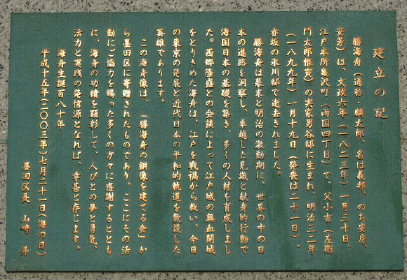 建立の記
勝海舟（通称・麟太郎、名は義邦、のち安房、
安芳）は、文政六年（一八二三年）一月三十日、
江戸本所亀沢町（両国四丁目）で、父小吉（左衛
門太郎惟寅）の実家男谷邸に生まれ、明治三二年
（一八九九年）一月十九日（発表は二十一日）、
赤坂の氷川邸で逝去されました。
勝海舟は幕末と明治の激動期に、世界の中の日
本の進路を洞察し、卓越した見識と献身的行動で
海国日本の基礎を築き、多くの人材を育成しまし
た。西郷隆盛との会談によって江戸城の無血開城
をとりきめた海舟は、江戸を戦禍から救い、今日
の東京の発展と近代日本の平和的軌道を敷設した
英雄であります。
この海舟像は、「勝海舟の銅像を建てる会」か
ら墨田区に寄贈されたものであり、ここにその活
動にご協力を賜った多くの方々に感謝するととも
に、海舟の功績を顕彰して、人びとの夢と勇気、
活力と実践の発信源となれば、幸甚と存じます。
海舟生誕一八十年
平成十五年（二〇〇三年）七月二十一日（海の日）
墨田区長 山﨑 昇